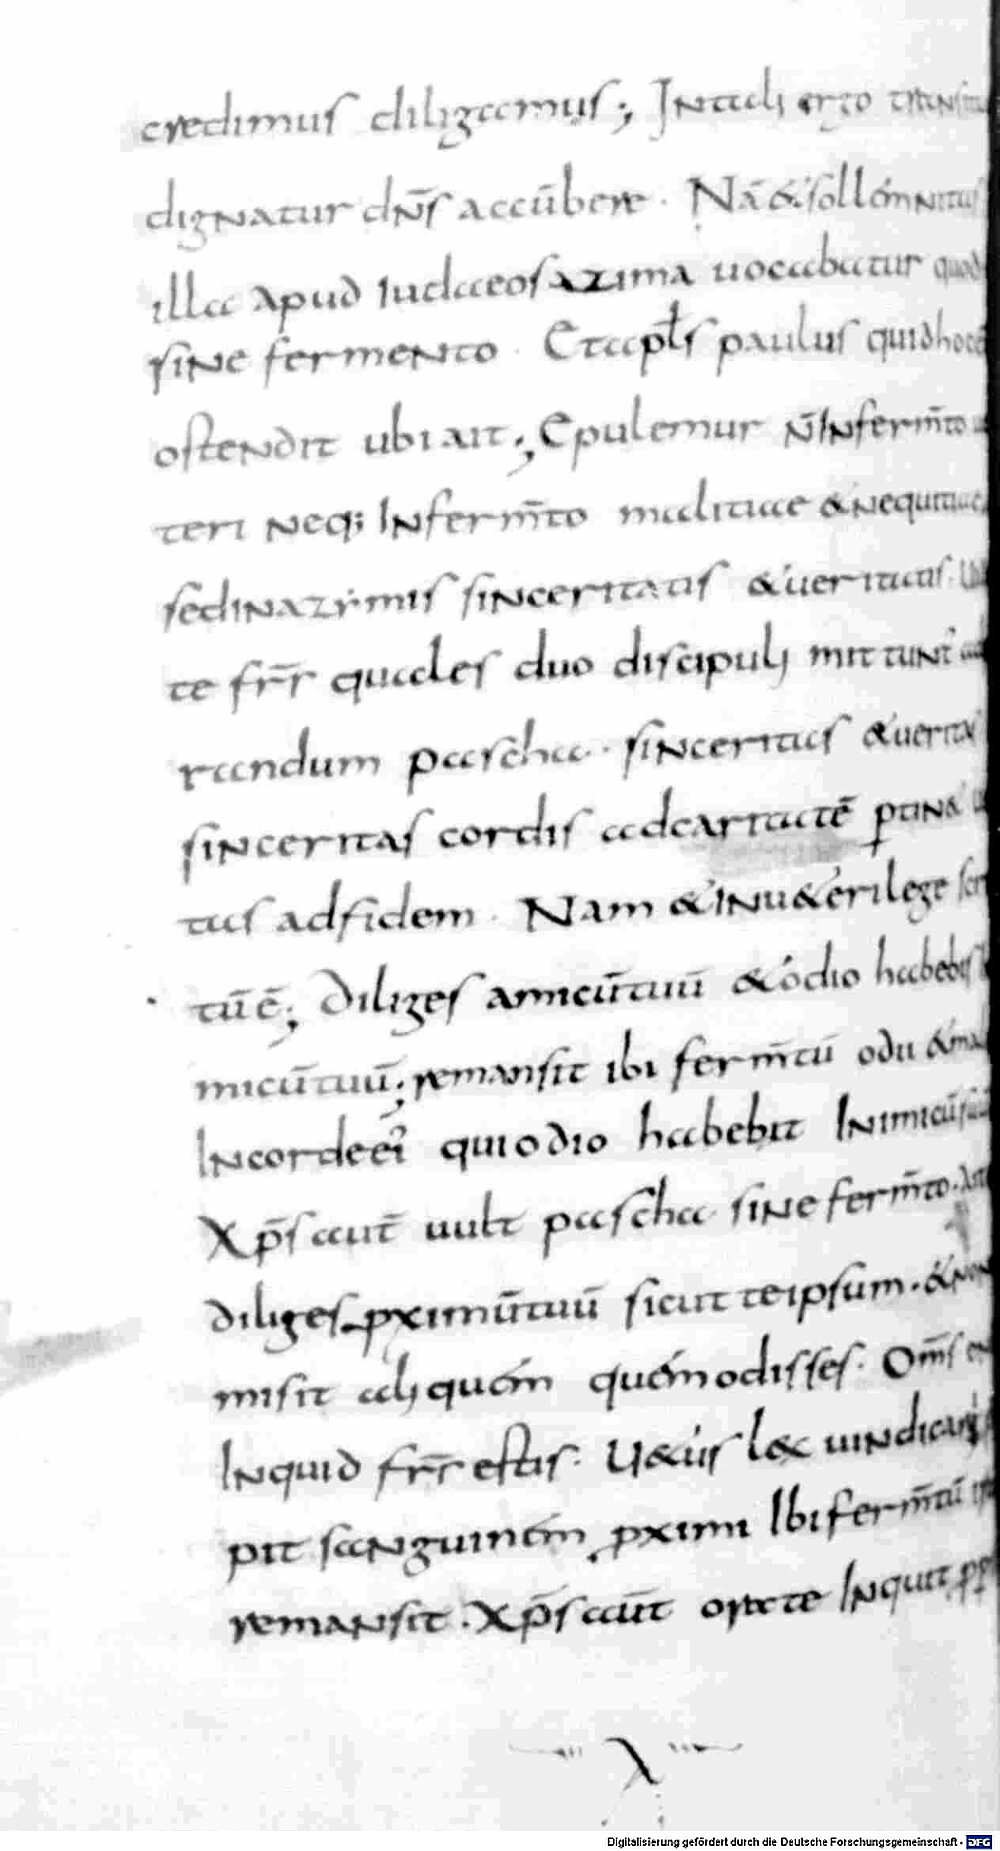 credimus diligamus; Intali ergo
dignatur dn̄s accūbere. Nā & sollemnitas
illa apud Iudaeos azima uocabatur quod
sine fermento. Et apl̄s paulus quid hoc
ostendit ubi ait; Epulemur n̄ Inferm̄to
teri neq; Inferm̄to malitiae & nequitiae
sed Inazymis sinceritatis & ueritatis.
te fr̄r quales duo discipuli mittunt᷑
randum pascha. sinceritas & ueritas
sinceritas cordis adcaritatē ꝑtin&
tas adfidem. Nam & Inu&eri lege
tū ē; Diliges amicū tuū & odio habebis
micū tuū; remansit ibi ferm̄tū odii &
Incorde ei᷒ qui odio habebit Inimicū
Xp̄s aut̄ uult pascha sine ferm̄to.
diliges ꝓximū tuū sicut teipsum. & non
misit aliquem quem odisses. Om̄s
Inquid fr̄r estis. U&us lex
pit sanguinem ꝓximi Ibi ferm̄tū
remansit. Xp̄s aūt orate Inquit
X
Digitalisierung gefördert durch die Deutsche Forschungsgemeinschaft - DFG